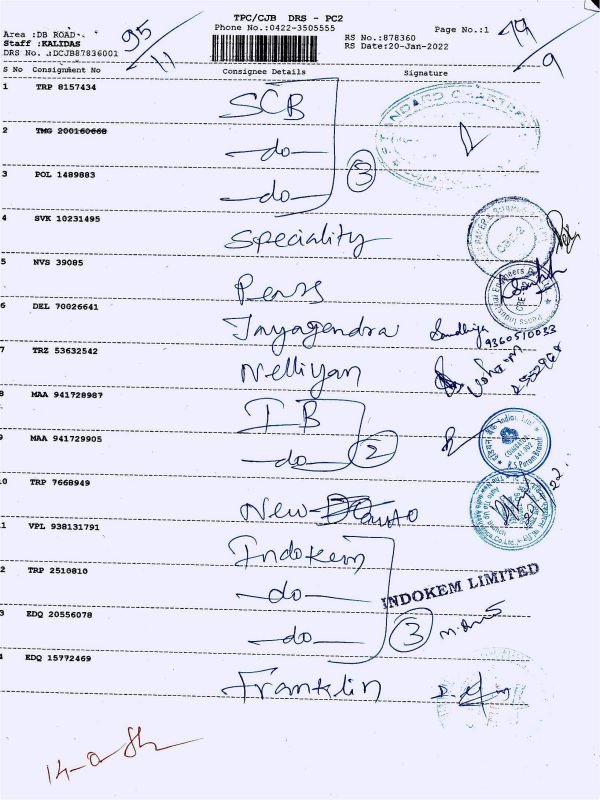 TPC/CJB DRS - PC2
Phone No.:0422-3505555
Page No.:1
Area :DB ROAD
Staff :KALIDAS
DRS No. :DCJB87836001
RS No.:878360
RS Date:20-Jan-2022
95/11
99/9
S No Consignment No Consignee Details Signature
1 TRP 8157434 SCB
2 TMG 200160668 -do-
3 POL 1489883 -do-
3
4 SVK 10231495 Speciality
5 NVS 39085 Pens
6 DEL 70026641 Jayagendra Sandhiya
9360510033
7 TRZ 53632542 Nelliyan
8 MAA 941728987 IB
9 MAA 941729905 -do- 2
10 TRP 7668949 New Auto
11 VPL 938131791 Indokem
2 TRP 2510810 -do-
INDOKEM LIMITED
3 EDQ 20556078 -do- 3
4 EDQ 15772469 Franklin